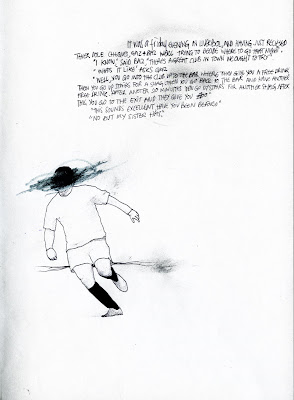 IT WAS A FRIDAY EVENING IN LIVERPOOL, AND HAVING JUST RECIEVED
THEIR DOLE CHEQUES, GAZ & BAZ WERE TRYING TO DECIDE WHERE TO GO THAT NIGHT.
"I KNOW," SAID BAZ, "THERES A GREAT CLUB IN TOWN WE OUGHT TO TRY"
"WHATS IT LIKE" ASKS GAZ
"WELL, YOU GO INTO THE CLUB UP TO THE BAR WHERE THEY GIVE YOU A FREE DRINK
THEN YOU GO UP STAIRS FOR A SHAG THEN YOU GO BACK TO THE BAR AND HAVE ANOTHER
FREE DRINK. AFTER ANOTHER 20 MINUTES YOU GO UPSTAIRS FOR ANOTHER SHAG, AFTER
THIS YOU GO TO THE EXIT AND THEY GIVE YOU
"THIS SOUNDS EXCELLENT HAVE YOU BEEN BEFORE"
"NO BUT MY SISTER HAS".